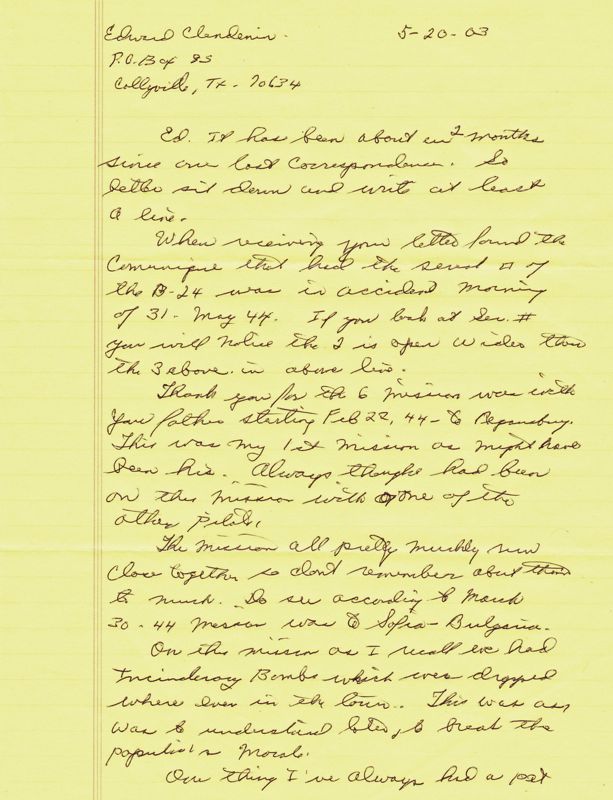 Edward Clendenin. 5-20-03
P.O. Box 95
Collyville, Tx - 70634
Ed. It has been about 2 months
since our last correspondence. So
better sit down and write at least
a line.
When receiving your letter found the
Comunique that had the serial # of
the B-24 was in accident morning
of 31 - May 44. If you look at Ser. #
you will notice the 2 is open wider than
the 3 above. in above line.
Thank you for the 6 mission was with
your father starting Feb 22, 44 - to Regensburg.
This was my 1st mission as might have
been his. Always thought had been
on this mission with one of the
other pilots.
The mission all pretty muchly run
close together so dont remember about them
to much. Do see according to March
30 - 44 mission was to Sofia - Bulgaria.
On this mission as I recall we had
Incinderary Bombs which was dropped
where ever in the town. This was as,
was to understand later, to break the
populie's Morale.
One thing I've always had a pat